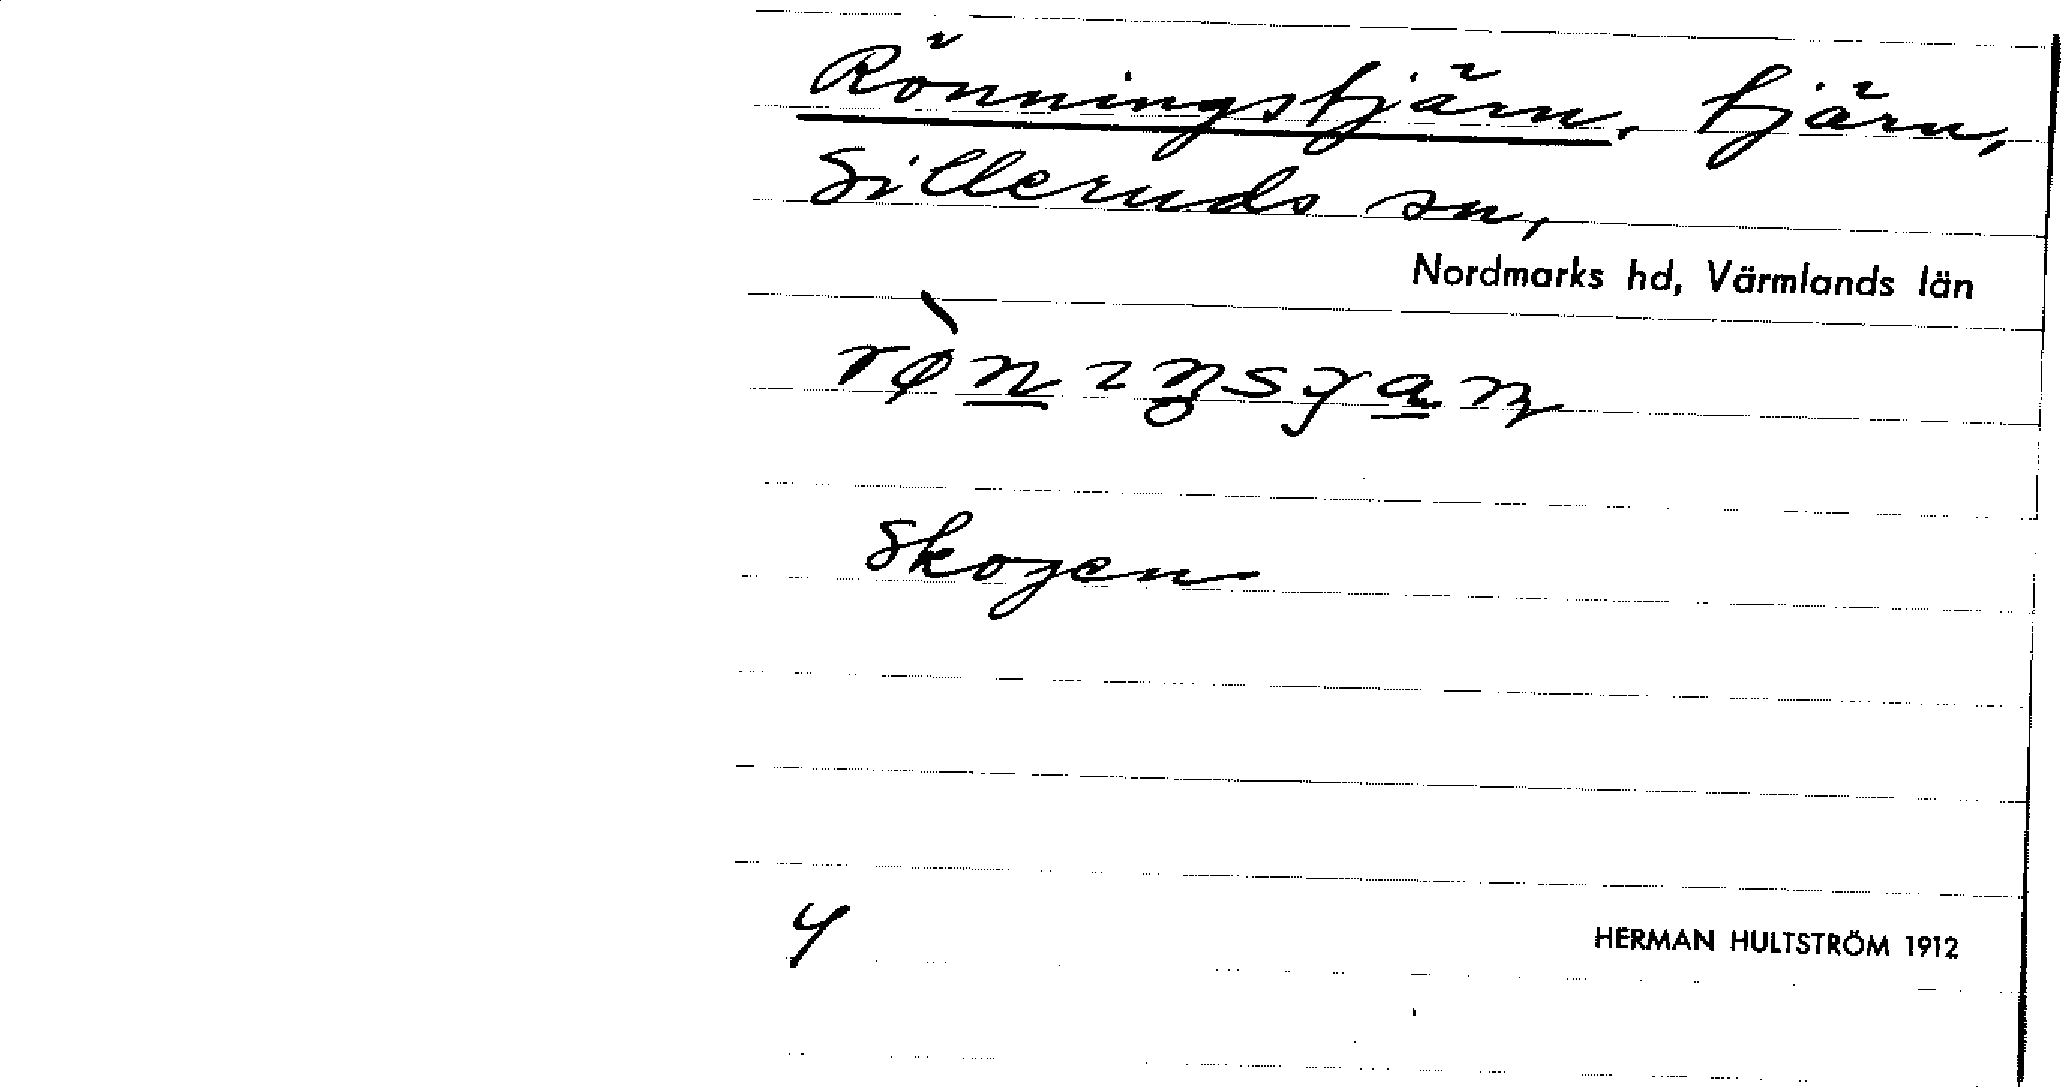 Rönningstjärn. tjärn,
Silleruds sn,
Nordmarks hd, Värmlands län
Skogen
4
HERMAN HULTSTRÖM 1912